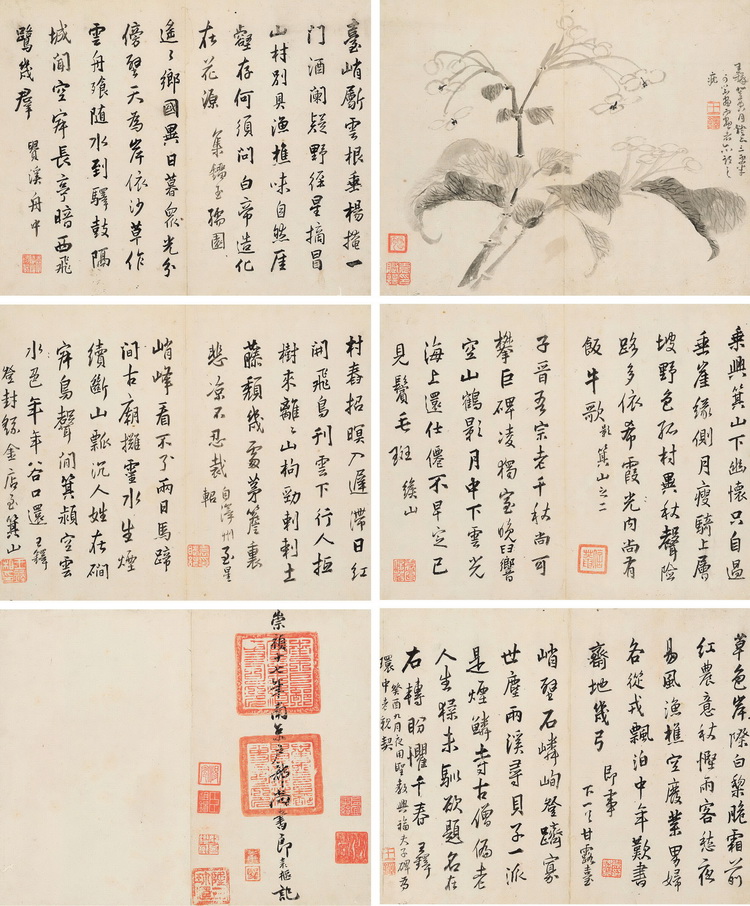 臺峭斸雲根垂楊掩一
門酒闌疑野徑星摘冒
山村別具漁樵味自然厓
壑存何須問白帝造化
在花源
遙遙鄉國異日暮眾光分
傍壁天為岸依沙草作
雲舟飧隨水到驛鼓隔
城聞空穽長亭暗西飛
鷺幾群 竇溪舟中
乘興箕山下幽懷只自過
垂崖緣側月瘦騎上層
坡野色孤村異秋聲險
路多依希霞光內尚有
飯牛歌 箕山之二
子晉吾宗老千秋尚可
攀巨碑凌獨室晚臼響
空山鶴影月中下雲光
海上還仕僊不早定已
見鬢毛斑 緱山
村舂招暝入遲滯日紅
開飛鳥刊雲下行人拒
樹來離離山枸勁剌剌土
藤頹幾處茅簷裏
悲涼不忍裁 自澤州至星
軺
峭峰看不了兩日馬蹄
間古廟擁靈水生煙
續斷山瓢沉人姓在磵
穽鳥聲間箕潁空雲
水邑年年谷口還 王鐸
登封 金店至箕山
草色岸際白黎脆霜前
紅農意秋慳雨客愁夜
易風漁樵空廢業男婦
各從戎飄泊中年歎書
齋地幾弓 即事
下一 甘露臺
峭壁石嶙峋登躋寡
世塵兩溪尋貝子一派
是煙鱗寺古僧偏老
人生猱未馴欲題名在
右轉盼懼千春 王鐸
癸酉九月夜用聖教興福夫子碑為
環中老親契
崇禎十七年南京戶部尚書郎袁樞記